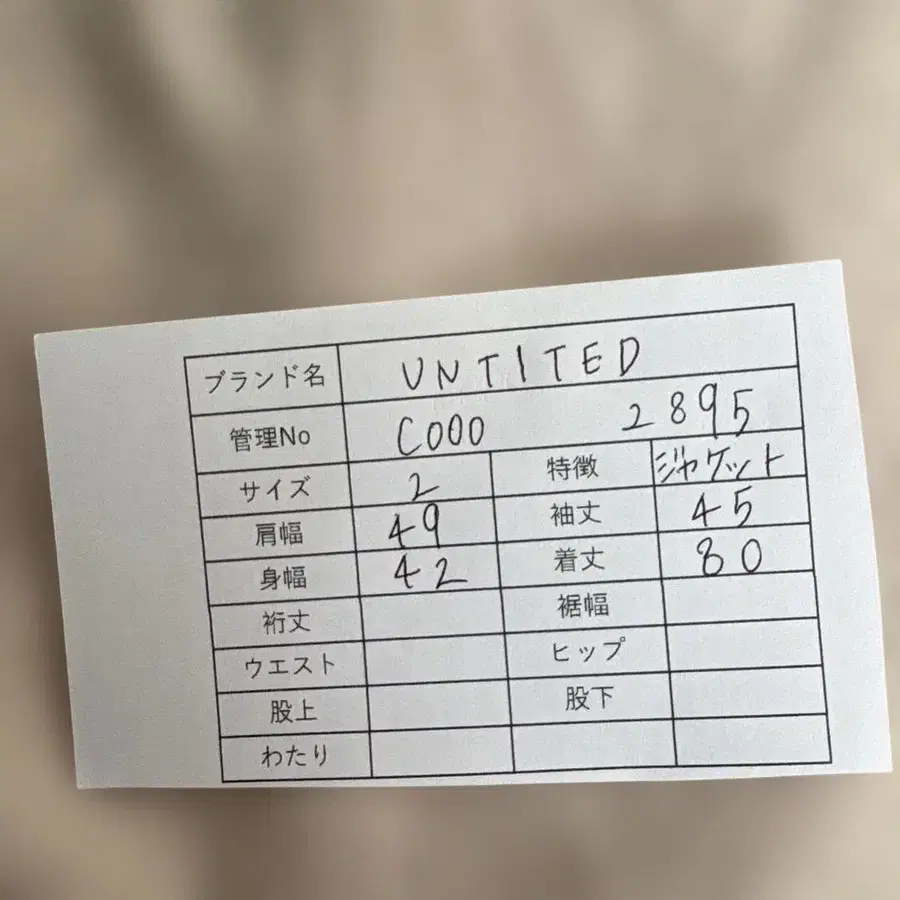 ブランド名 UNTITED
管理No C000 2895
サイズ 2 特徴 ジャケット
肩幅 49 袖丈 45
身幅 42 着丈 80
裄丈 裾幅
ウエスト ヒップ
股上 股下
わたり